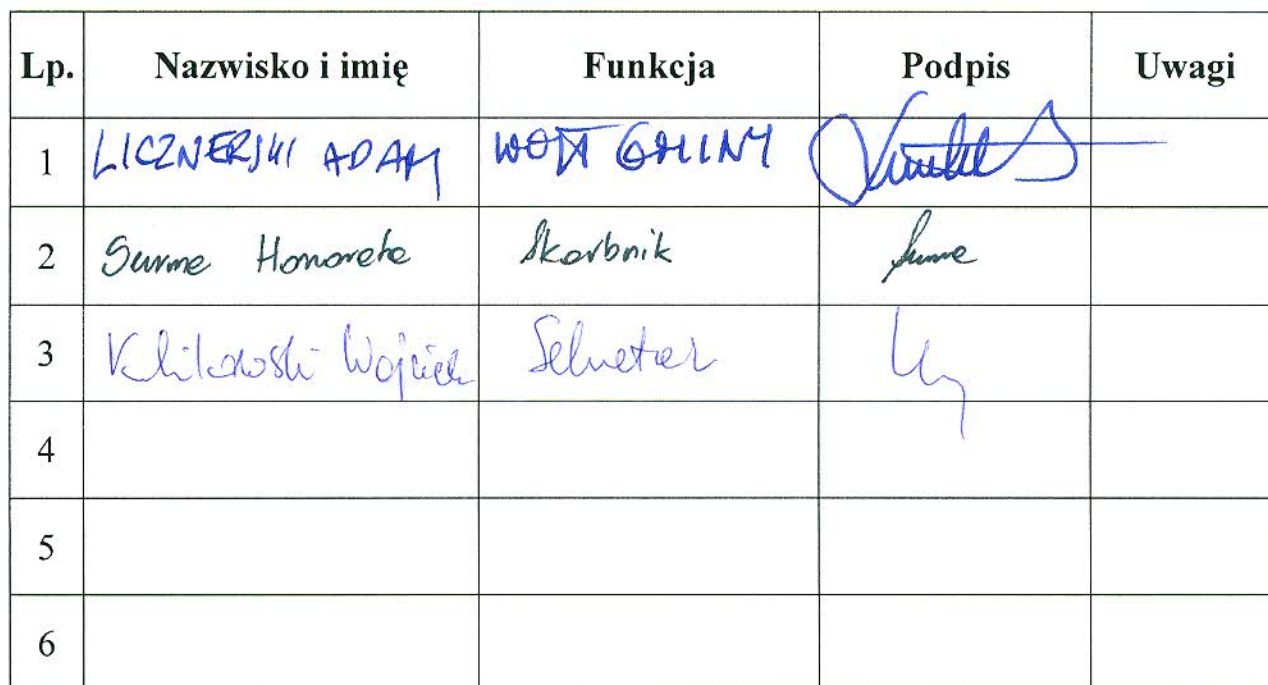 Lp. Nazwisko i imię Funkcja Podpis Uwagi
1 LICZNERSKI ADAM WÓJT GMINY
2 Surma Honorata Skarbnik
3 Wojciech Sekretarz
4
5
6